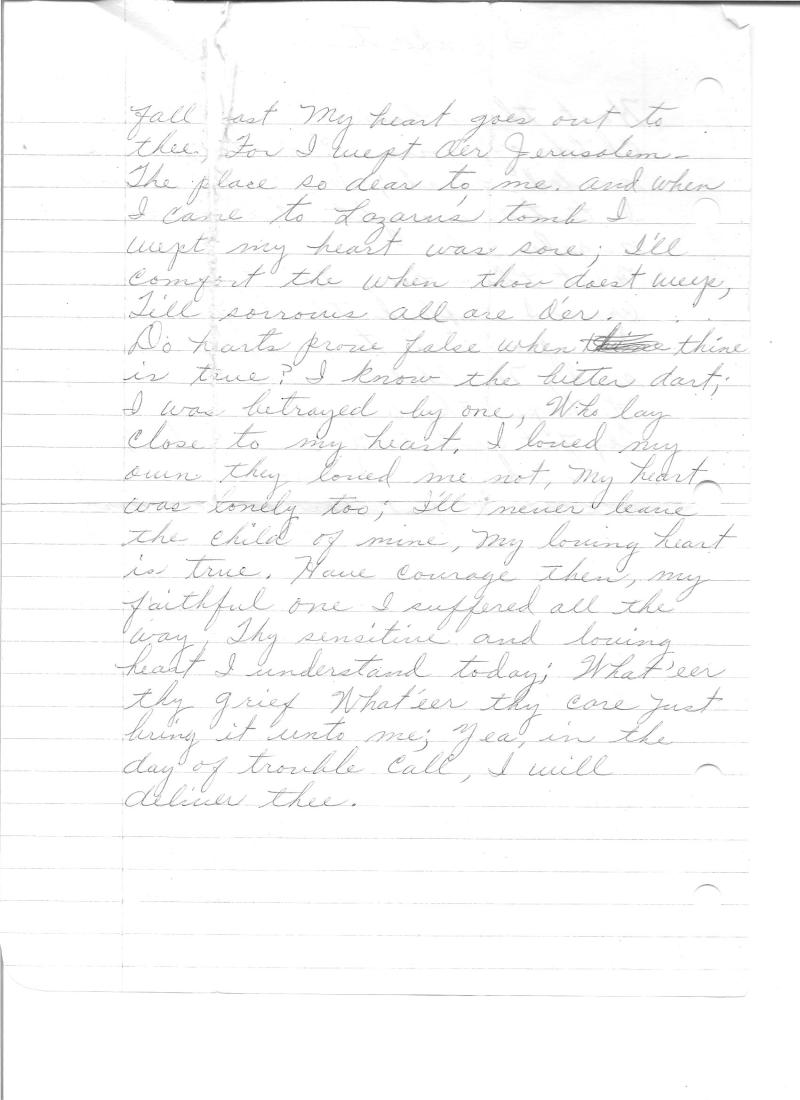 fall fast My heart goes out to
thee, For I wept O'er Jerusalem -
The place so dear to, me. and when
I came to Lazarus tomb I
wept my heart was sore; I'll
comfort the when thou doest weep,
Till sorrows all are O'er.
Do harts prove false when thine
is true? I know the bitter dart;
I was betrayed by one, Who lay
Close to my heart. I loved my
own they loved me not, My heart
was lonely too; I'll never leave
the child of mine, My loving heart
is true. Have courage then, my
faithful one I suffered all the
way, Thy sensitive and loving
heart I understand today; What'eer
thy grief What'eer thy care Just
bring it unto me; Yea, in the
day of trouble Call, I will
deliver thee.